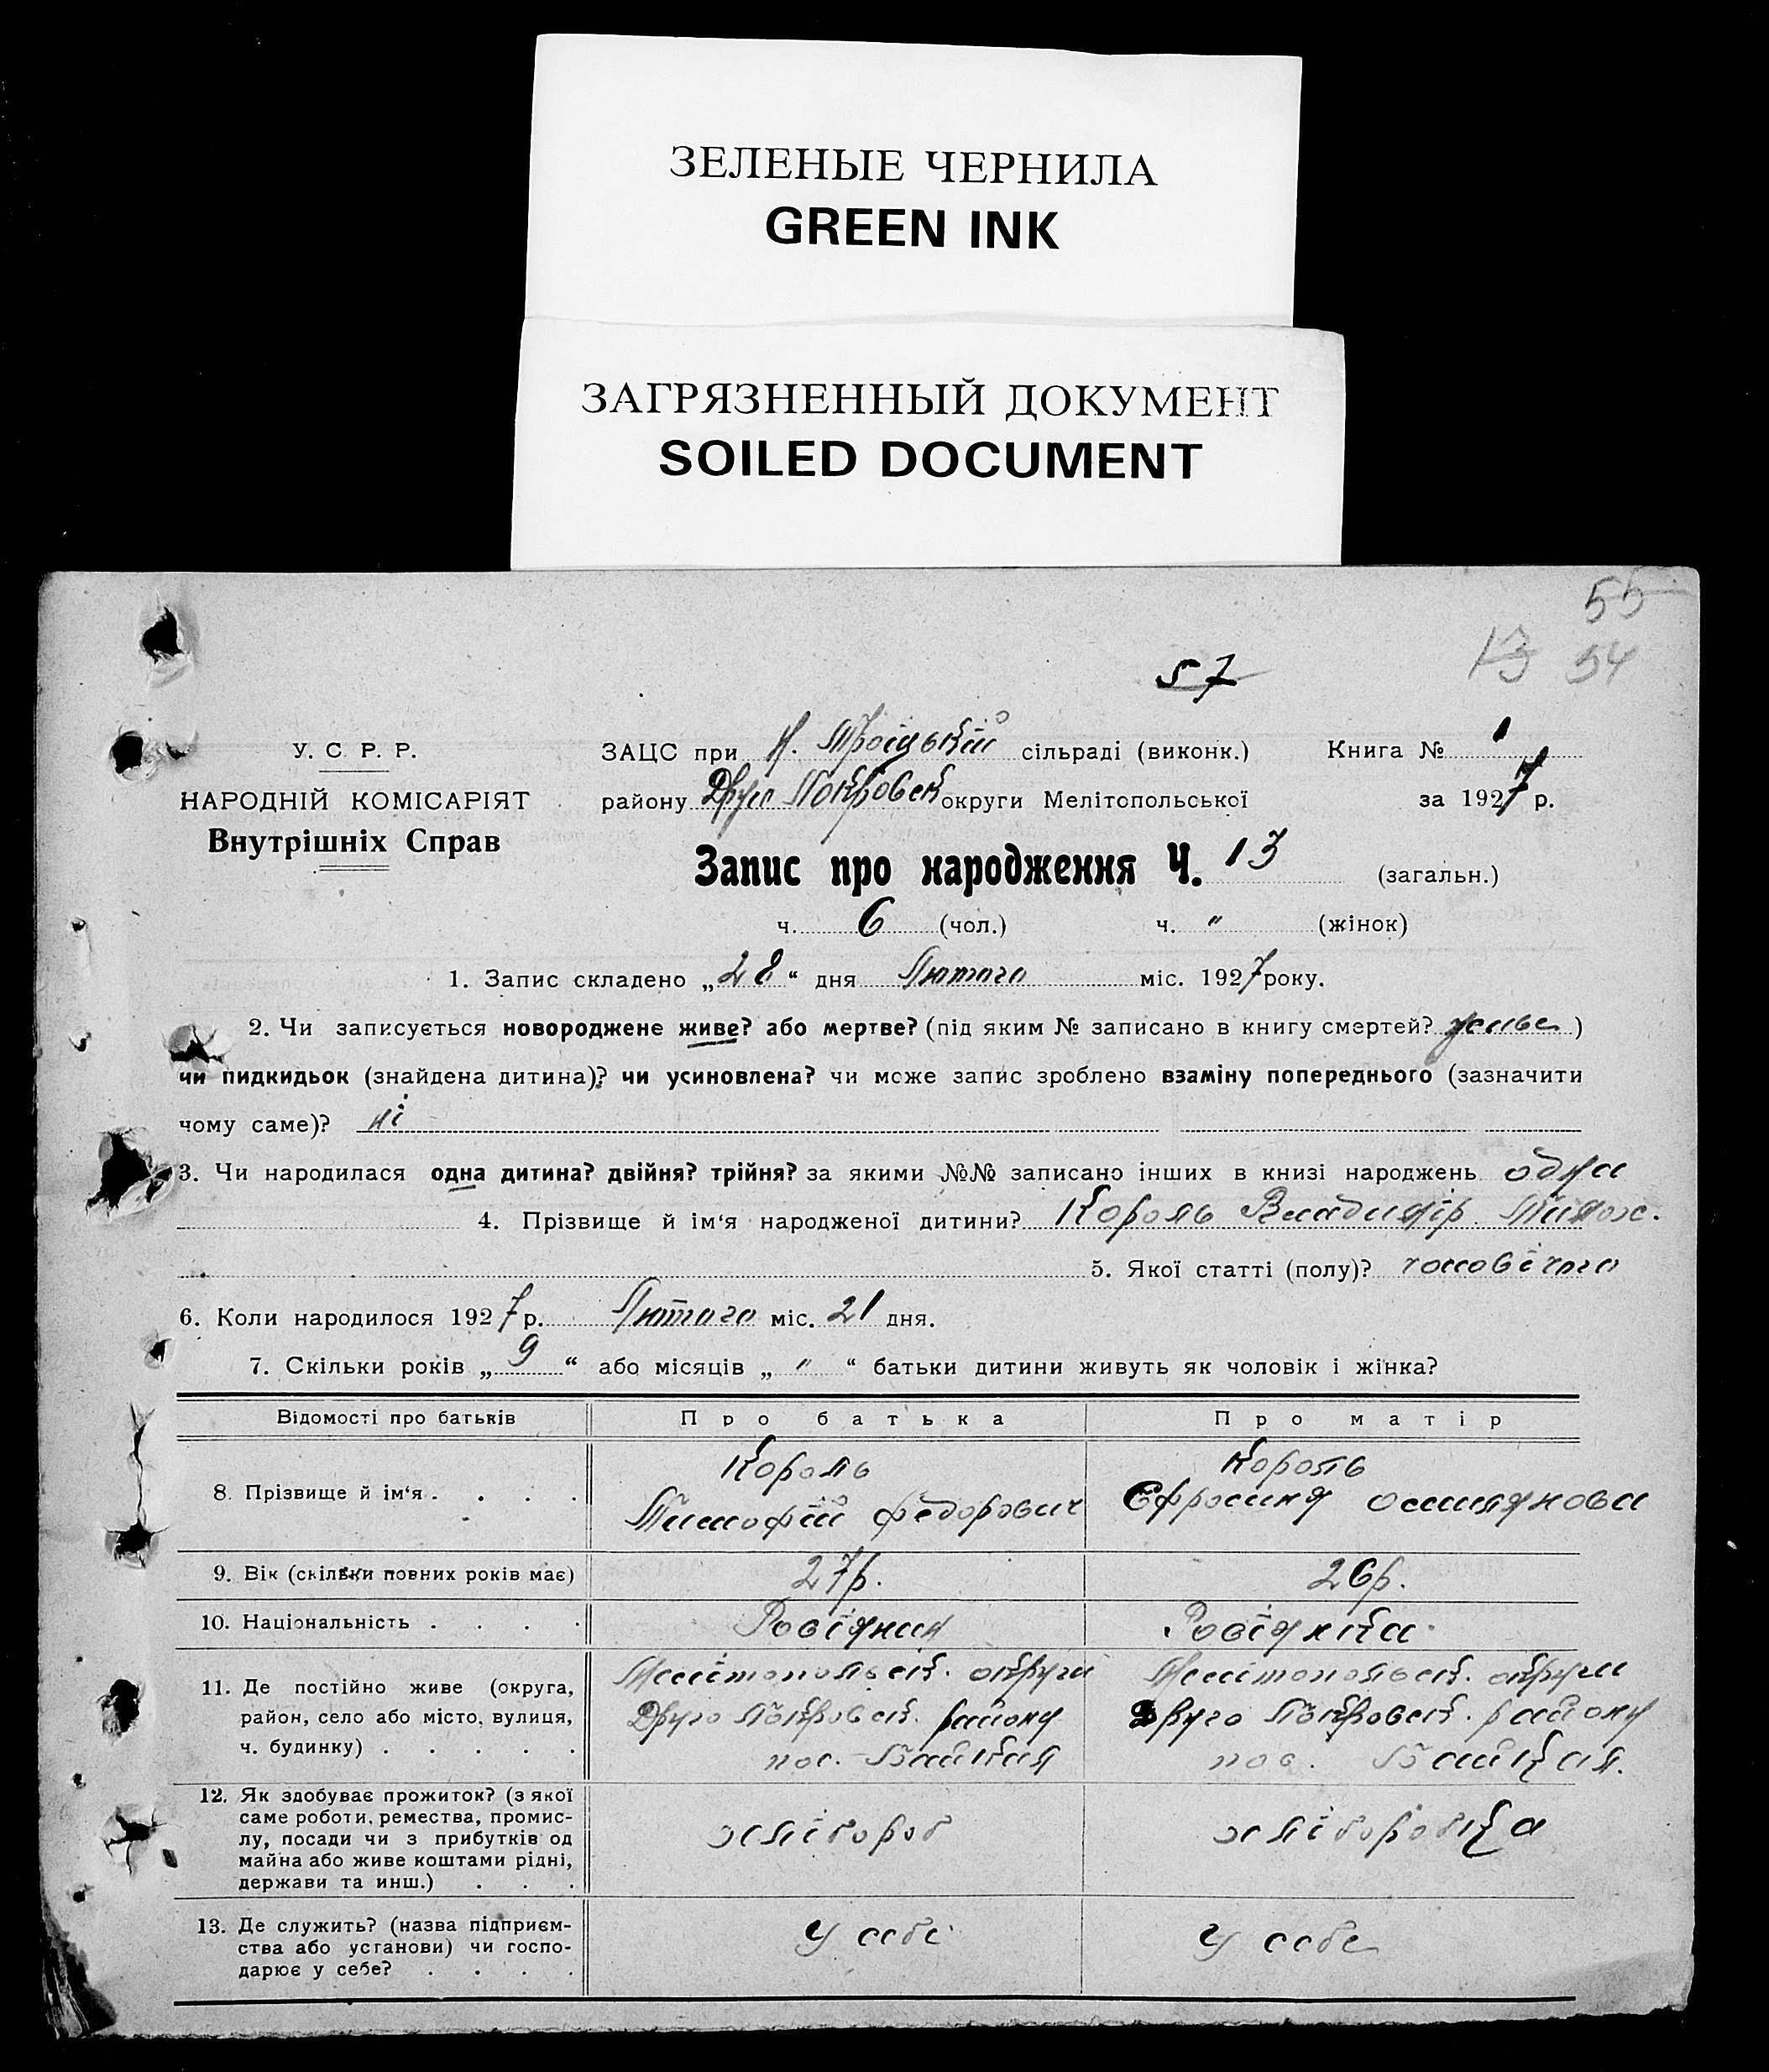 ЗЕЛЕНЫЕ ЧЕРНИЛА
GREEN INK
ЗАГРЯЗНЕННЫЙ ДОКУМЕНТ
SOILED DOCUMENT
55
13 54
57
У. С. Р. Р.
НАРОДНІЙ КОМІСАРІЯТ
Внутрішніх Справ
ЗАЦС при Н. Троїцькій сільраді (виконк.) Книга № 1
району Друго Покровськ округи Мелітопольської за 1927 р.
Запис про народження Ч. 13 (загальн.)
ч. 6 (чол.) ч. " (жінок)
1. Запис складено „28“ дня Лютого міс. 1927 року.
2. Чи записується новороджене живе? або мертве? (під яким № записано в книгу смертей? живе)
чи пидкидьок (знайдена дитина)? чи усиновлена? чи може запис зроблено взаміну попереднього (зазначити
чому саме)? ні
3. Чи народилася одна дитина? двійня? трійня? за якими №№ записано інших в книзі народжень одна
4. Прізвище й ім‘я народженої дитини? Король Владимір Тимох.
5. Якої статті (полу)? чоловічого
6. Коли народилося 1927 р. Лютого міс. 21 дня.
7. Скільки років „9“ або місяців „"“ батьки дитини живуть як чоловік і жінка?
Відомості про батьків Про батька Про матір
8. Прізвище й ім‘я . . . . Король Тимофій Федорович Король Єфросиня
9. Вік (скільки повних років має) 27р. 26р.
10. Національність . . . . Росіянин Росіянка
11. Де постійно живе (округа,
район, село або місто, вулиця,
ч. будинку) . . . . .
Мелітопольськ. округи Мелітопольськ. округи
Друго Покровськ. району Друго Покровськ. району
пос. пос.
12. Як здобуває прожиток? (з якої
саме роботи, ремества, промис-
лу, посади чи з прибутків од
майна або живе коштами рідні,
держави та инш.) . . .
хлібороб хліборобка
13. Де служить? (назва підприєм-
ства або установи) чи госпо-
дарює у себе? . . . .
У себе У себе